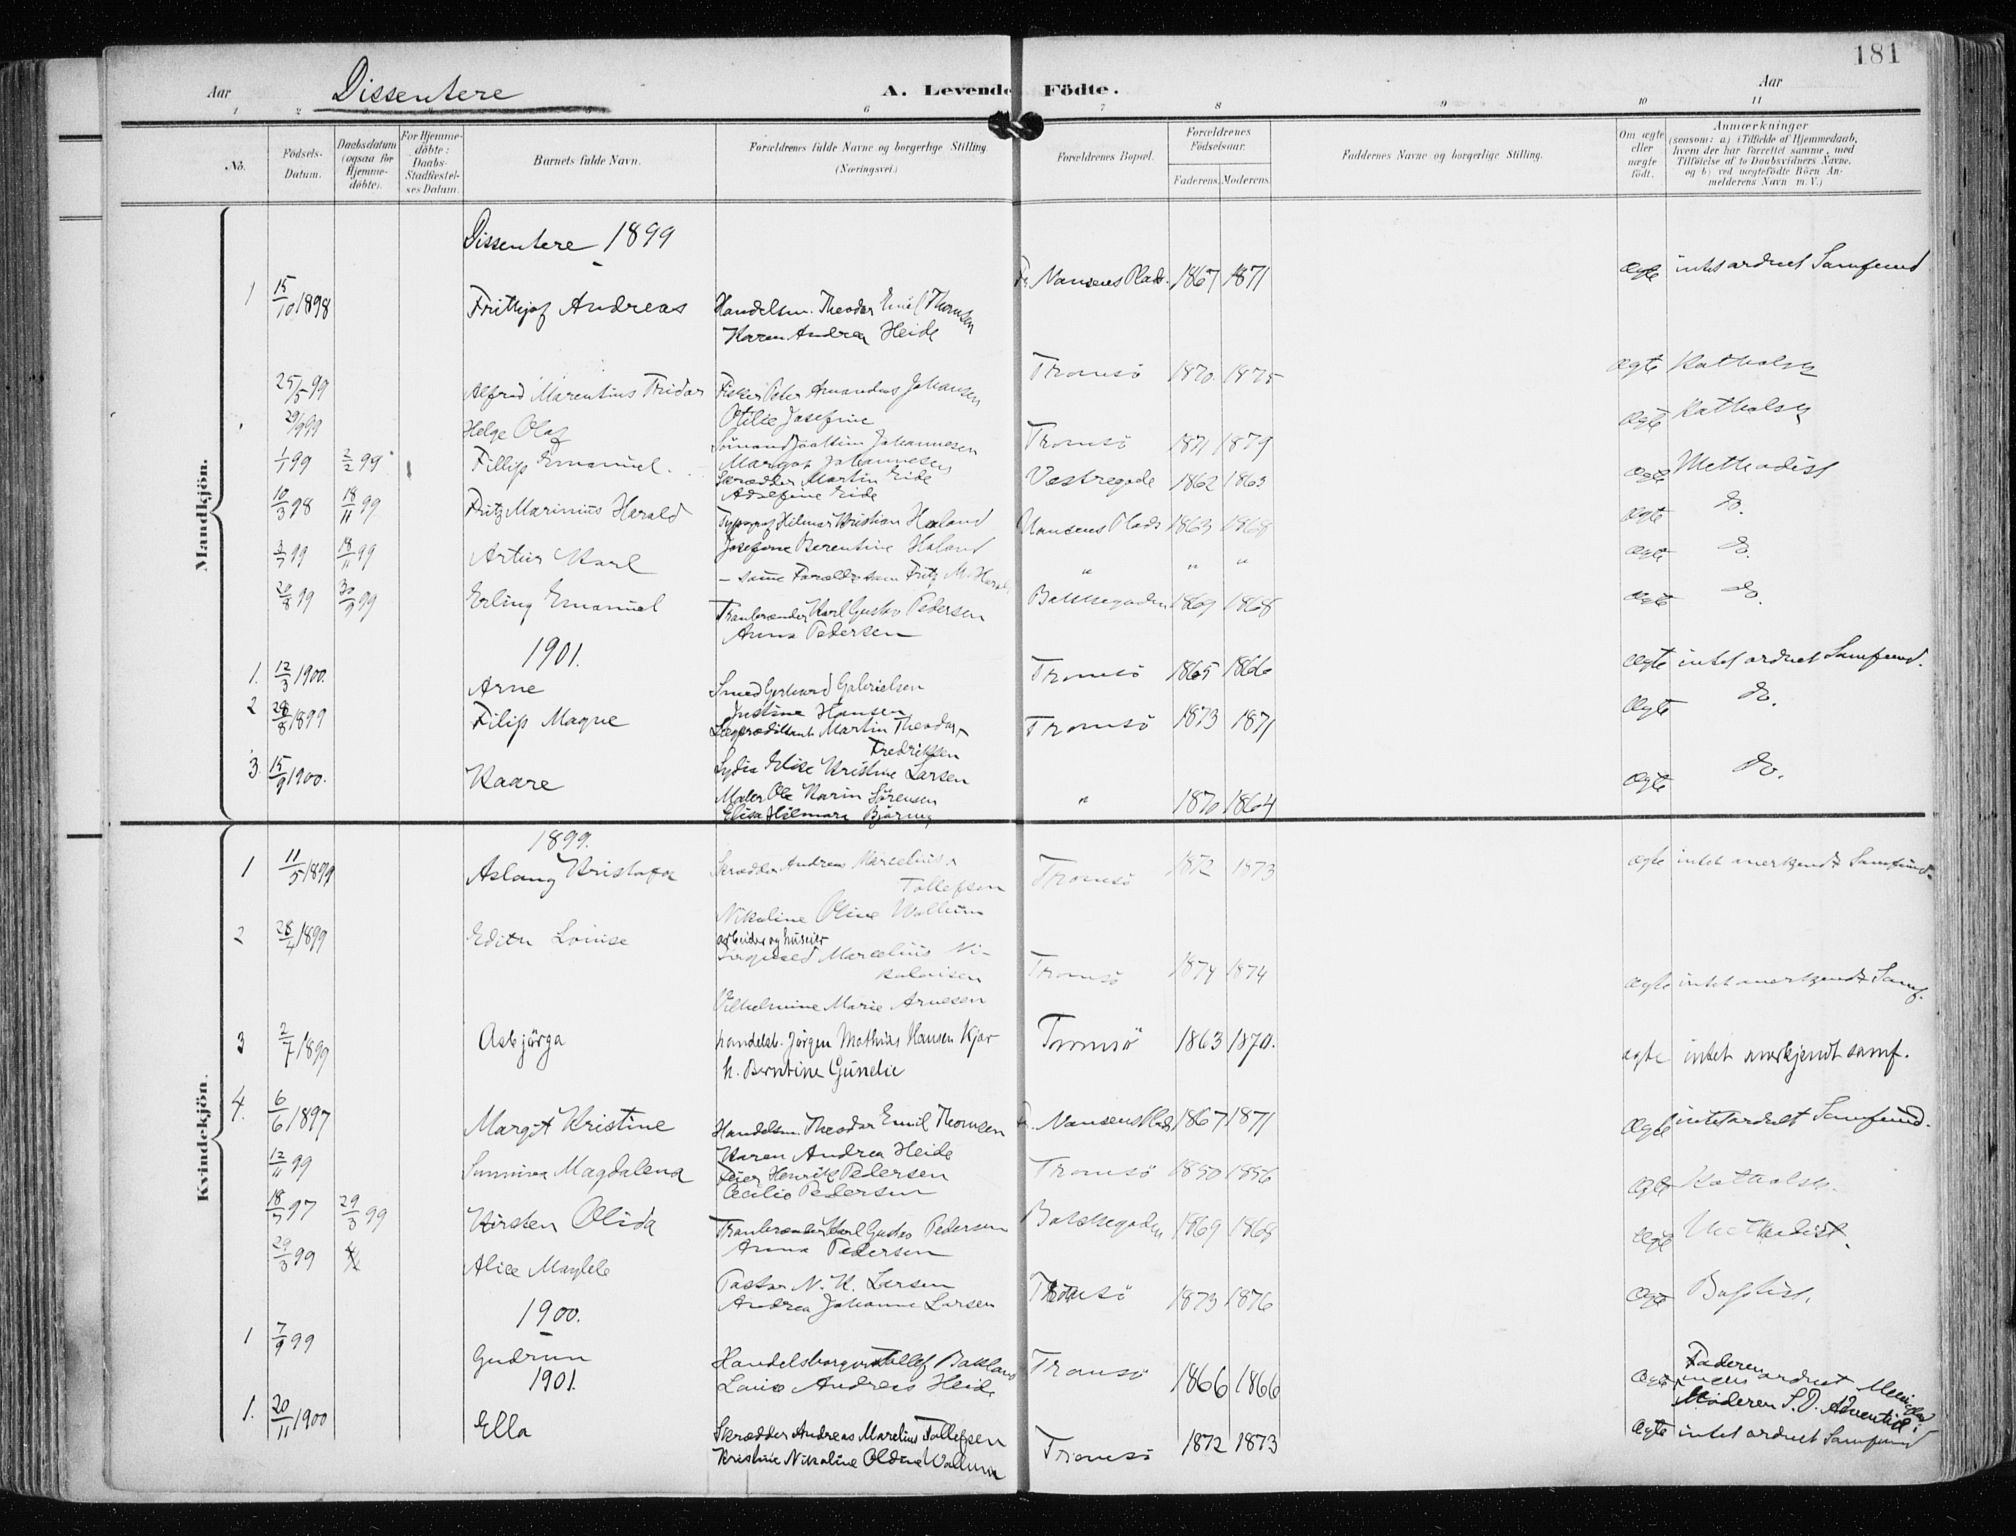 181
Aar Dissentere A. Levende Födte. Aar
1 2 6 7 8 9 10 11
No. Födsels-Datum. Daabsdatum (ogsaa for Hjemme-döbte). For Hjemme-döbte: Daabs-Stadfæstel-ses Datum. Barnets fulde Navn. Forældrenes fulde Navne og borgerlige Stilling. (Næringsvei.) Forældrenes Bopæl. Forældrenes Födselsaar. Faderens. Moderens. Faddernes Navne og borgerlige Stilling. Om ægte eller uægte födt. Anmærkninger (saasom: a) i Tilfælde af Hjemmedaab, hvem der har forrettet samme, med Tilföielse af to Daabsvidners Navne, og b) ved uægtefödte Börn An-melderens Navn m. V.)
Mandkjön.
Dissentere 1899
1 15/10 1898 Frithjof Andreas Handelsm. Theodor Emil Thomsen Fr. Nansens Plads. 1867 1871 ægte intet ordnet Samfund
Karen Andrea Heide
25/5 99 Alfred Marentius Fridar Fisker Peter Amandus Johansen Tromsö 1870 1875 ægte Katholsk
Otilie Josefine
29/9 99 Helge Olaf Johannesen Tromsö 1871 1879 ægte Katholsk
Margot Johannesen
1/1 99 2/2 99 Fillip Emanuel Skrædder Martin Eide Vestregade 1862 1863 ægte Methodist
Adsefine Eide
10/3 98 18/11 99 Fritz Marinius Harald Typograf Hilmar Kristian Haland Nansens Plads 1863 1868 ægte do.
Josefine Berentine Haland
3/7 99 18/11 99 Artur Karl - samme Forældre som Fritz M. Harald " " " ægte do.
29/8 99 30/9 99 Erling Emanuel Tranbrænder Karl Gustav Pedersen Bakkegaden 1869 1868 ægte do.
Anna Pedersen
1901.
1. 12/3 1900. Arne Smed Gerhard Gabrielsen Tromsö 1865 1866 ægte intet ordnet Samfund.
Justine Hansen
2 28/8 1899 Filip Magne Lægprædikant Martin Theodor Tromsö 1873 1871 ægte do.
Fredriksen
Lydia Elise Kristine Larsen
3. 15/9 1900. Kaare Maler Ole Karin Sörensen " 1870 1864 ægte do.
Elisa Hilmara Björing
Kvindekjön.
1899.
1 11/5 1899 Aslaug Kristofa Skrædder Andreas Marcelius Tromsö 1872 1873 ægte intet anerkjendt Samfund.
Tollefsen
Nikoline Oline Wallum
2 28/4 1899 Edith Louise arbeider og huseier Tromsö 1874 1874 ægte intet anerkjendt Samf.
Marcelius Ni-
kolaisen
Vilhelmine Marie Arnesen
3 2/7 1899 Asbjörga handelsb. Jörgen Mathias Hansen Kjær Tromsö 1863 1870. ægte intet anerkjendt samf.
h. Berntine Gunelie
4. 6/6 1897 Margit Kristine Handelsm. Theodor Emil Thomsen Fr. Nansens Plads 1867 1871 ægte intet ordnet Samfund.
Karen Andrea Heide
12/11 99 Sunniva Magdalena Feier Henrik Pedersen Tromsö 1850 1856 ægte Katholsk.
Cecilie Pedersen
18/7 97 29/3 99 Kirsten Olida Tranbrænder Karl Gustav Pedersen Bakkegaden 1869 1868 ægte Methodist.
Anna Pedersen
29/3 99 Alice Pastor N. K. Larsen Tromsö 1873 1876 ægte Baptist.
Andrea Johanne Larsen
1900.
1 7/9 99 Gudrun Handelsborger Tollef Bakland Tromsö 1866 1866 ægte Faderen ordnet
Andrea Heide Moderen S. D. Adventist
1901.
1. 20/11 1900 Ella Skrædder Andreas Marelius Tollefsen Tromsö 1872 1873 ægte intet ordnet Samfund
Kristine Nikoline Oldine Wallum